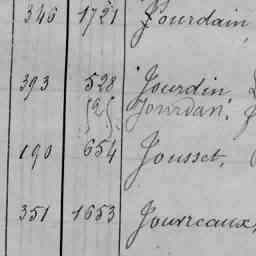 346 1721 Jourdain
393 528 Jourdin
Jourdan.
190 654 Jousset,
351 1653 Jouvreaux,